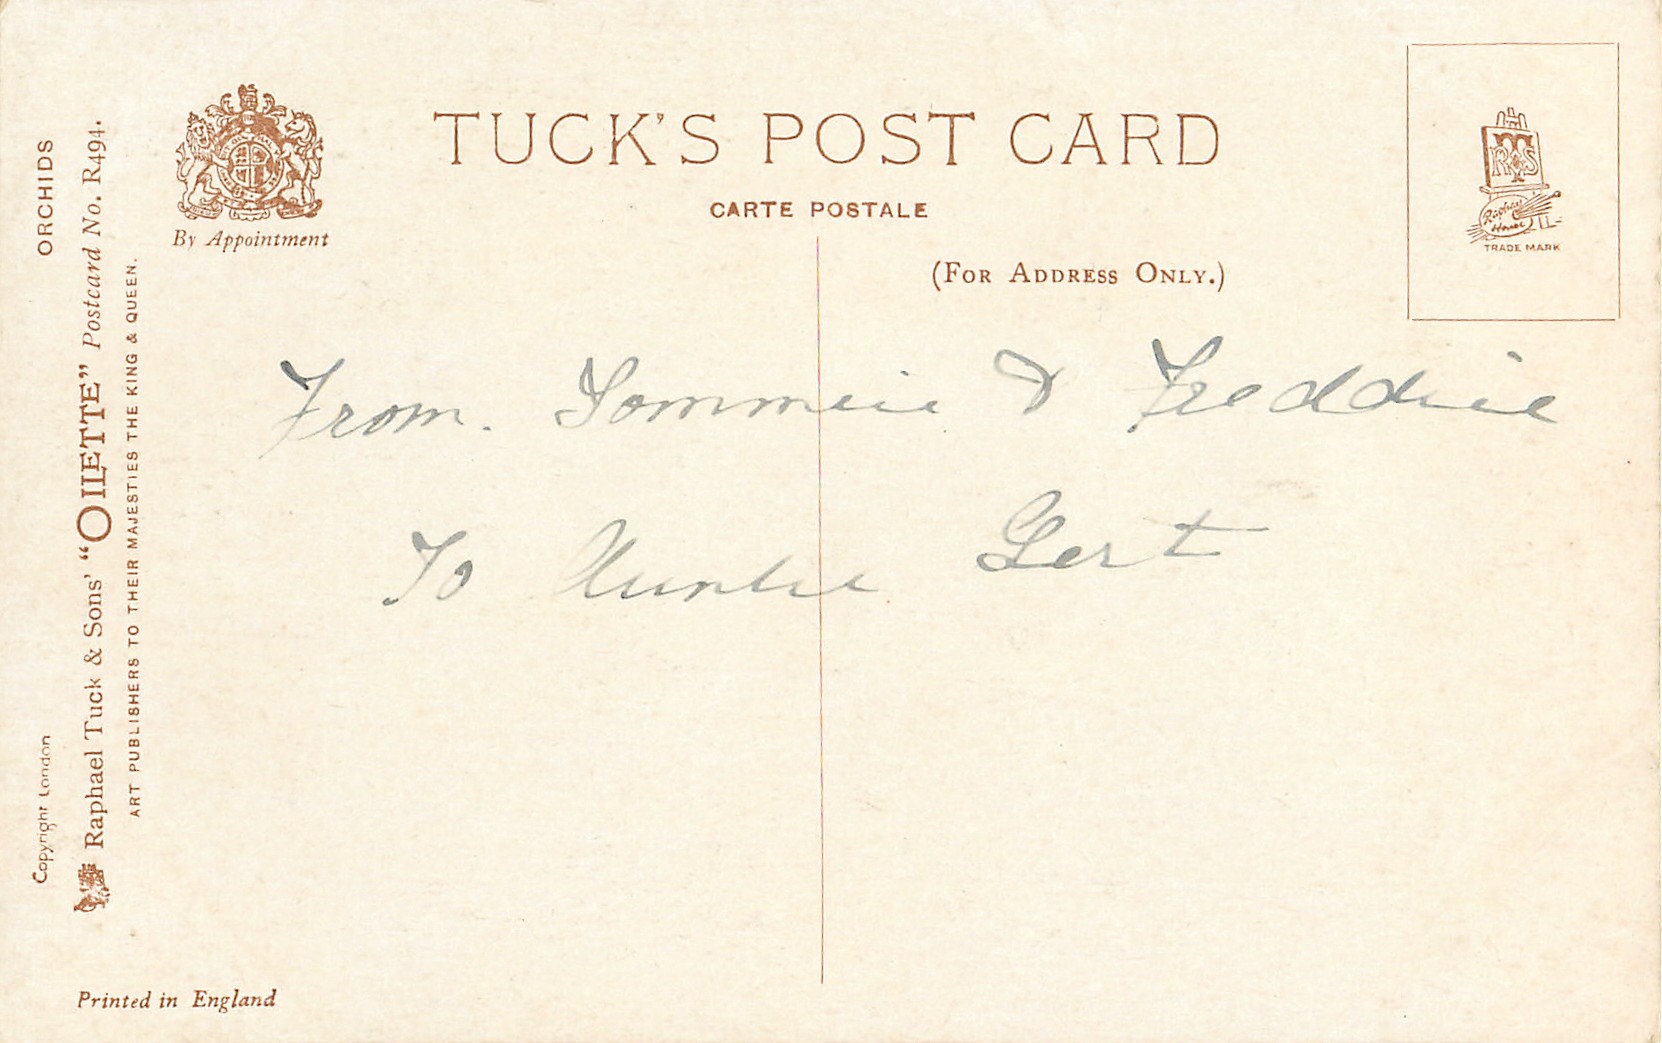 TUCK'S POST CARD
CARTE POSTALE
(FOR ADDRESS ONLY.)
By Appointment
RTS
Raphael House
TRADE MARK
ORCHIDS
Copyright London
Raphael Tuck & Sons' "OILETTE" Postcard No. R494.
ART PUBLISHERS TO THEIR MAJESTIES THE KING & QUEEN.
From. Tommie & Freddie
To Auntie Gert
Printed in England